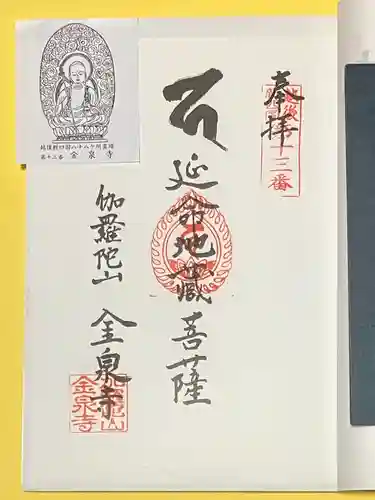 奉拝
越後
十三番
延命地蔵菩薩
伽羅陀山 金泉寺
金泉寺
越後新四国八十八ヶ所霊場
第十三番 金泉寺